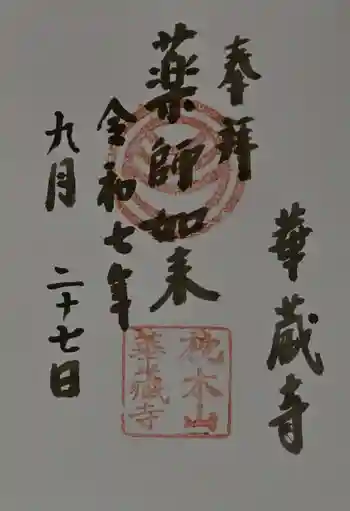 華蔵寺
奉拝
薬師如来
令和七年
九月二十七日
枕木山
華蔵寺